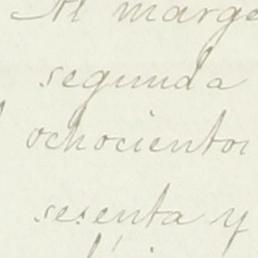 Al marge
segunda
ochocientos
sesenta y